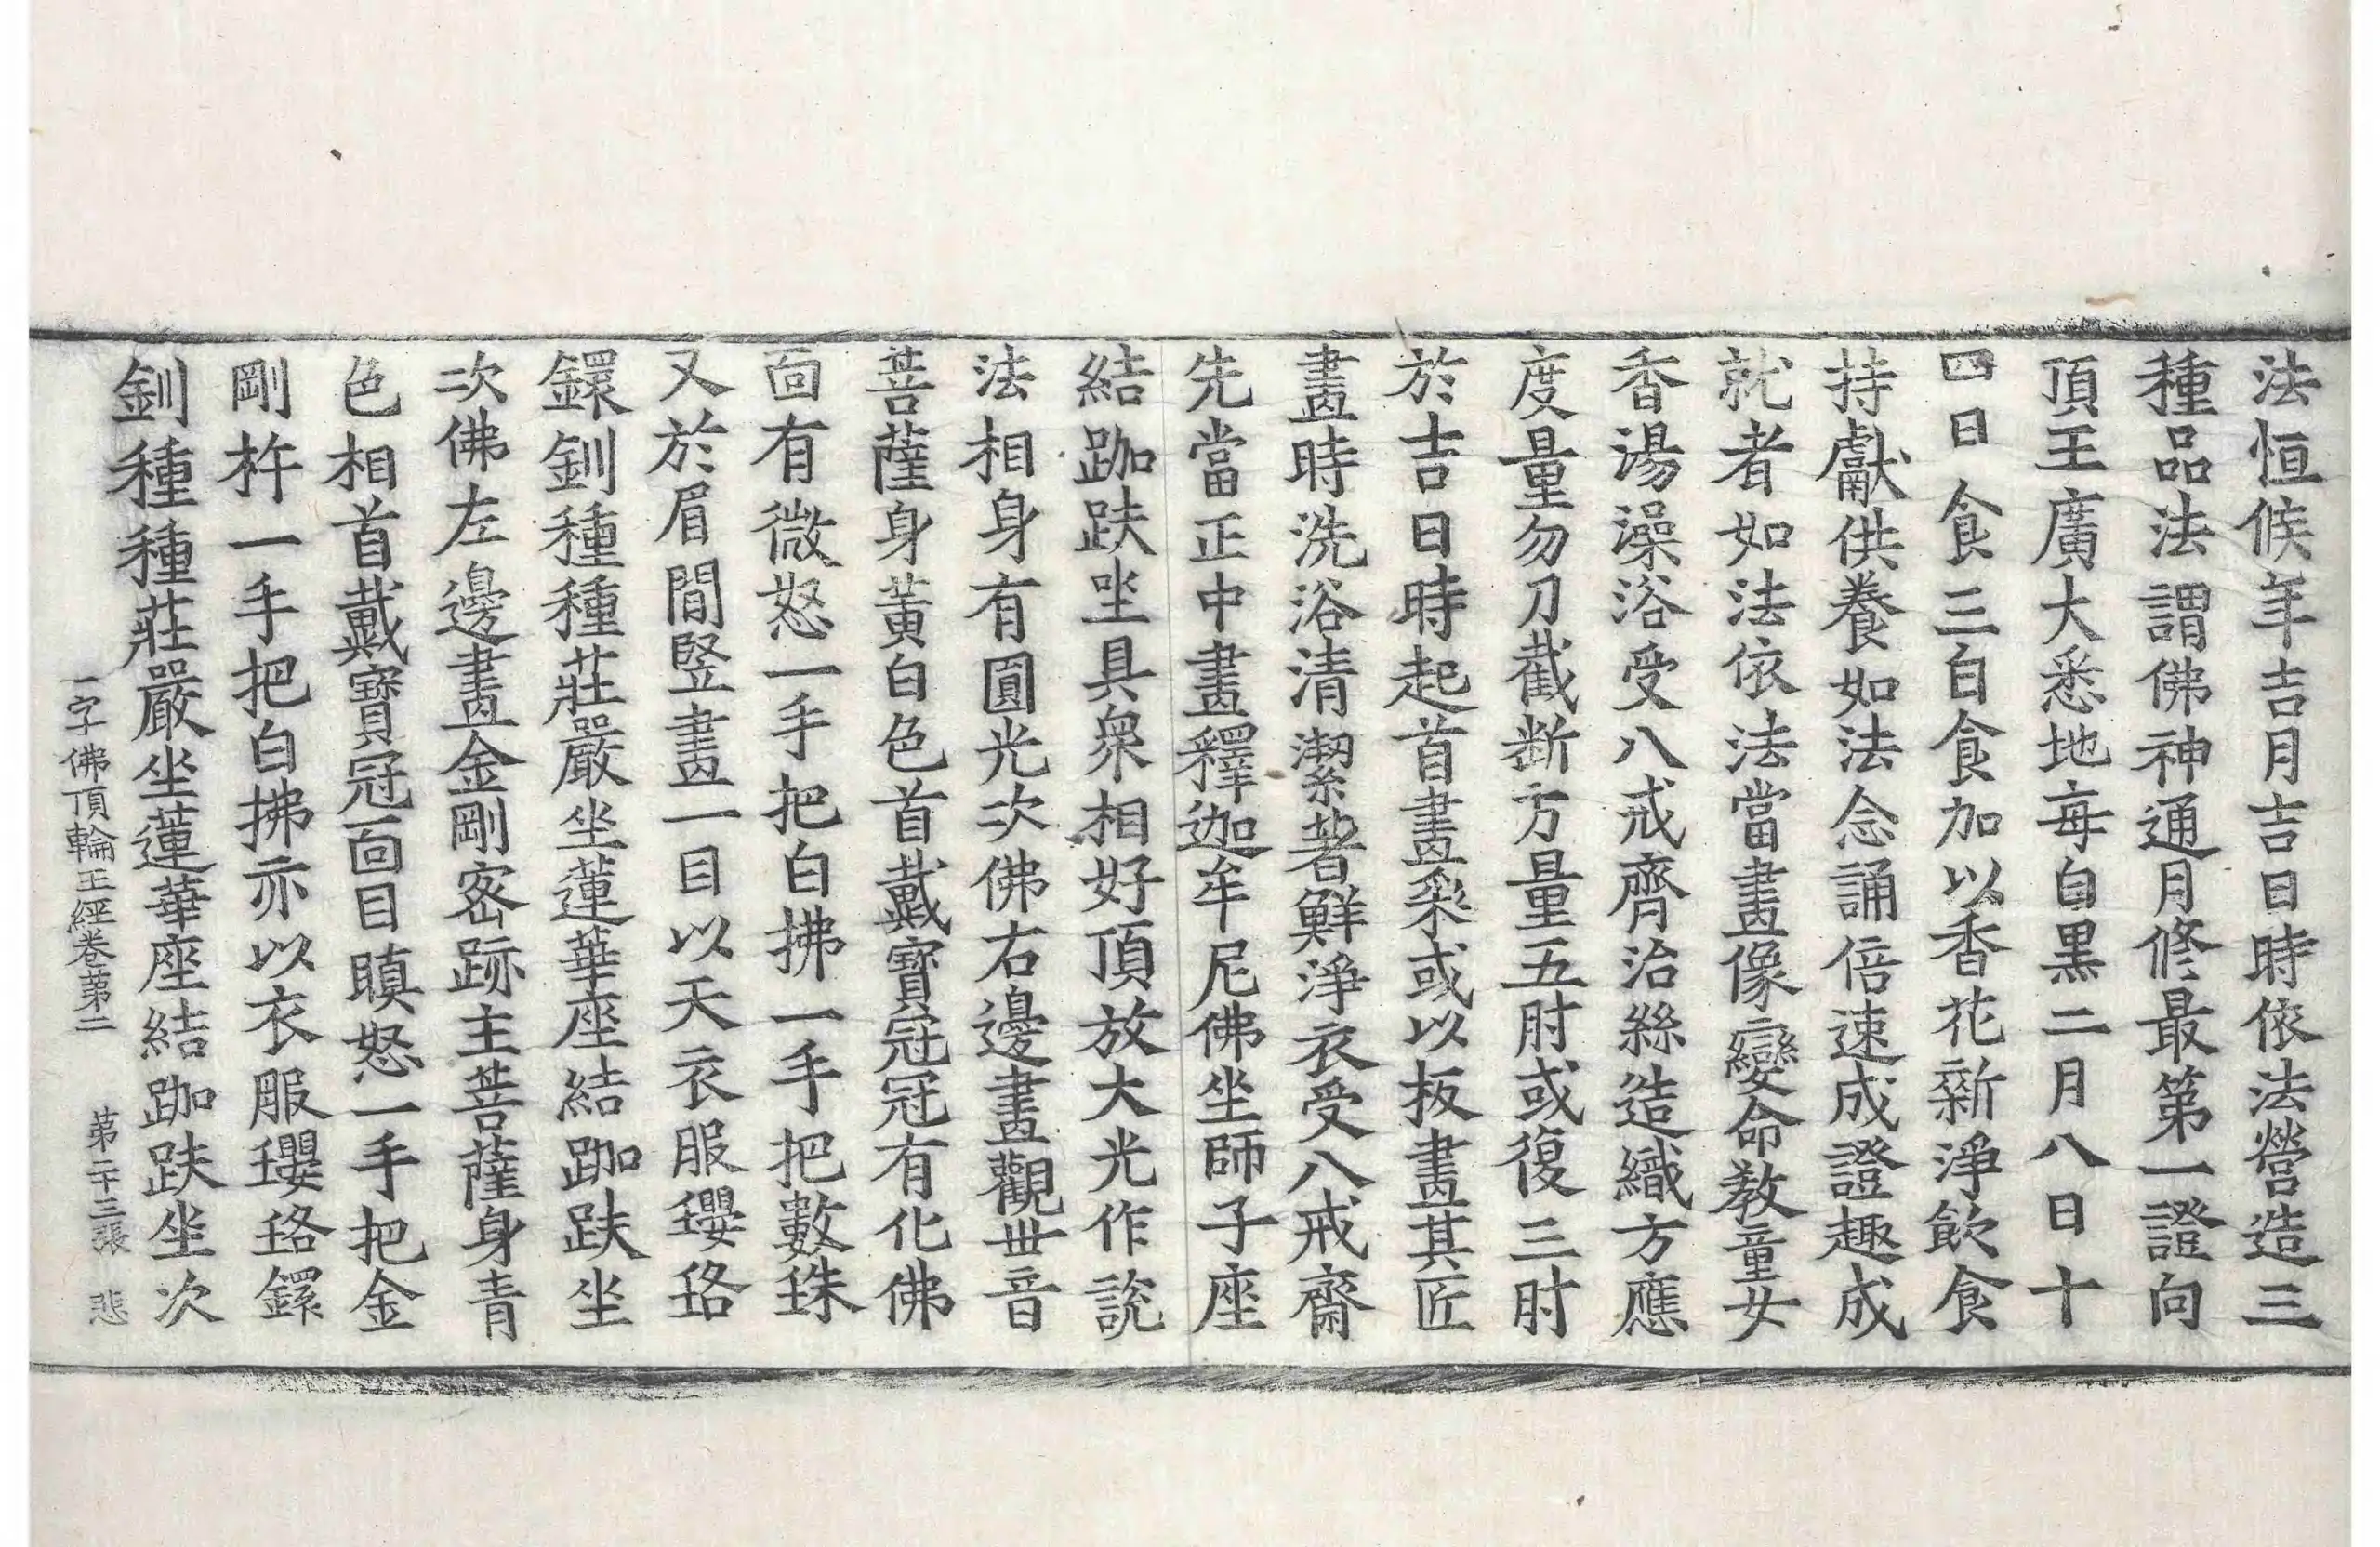 法恒候年吉月吉日時依法營造三
種品法謂佛神通月修最第一證向
頂王廣大悉地每自黑二月八日十
四日食三白食加以香花新淨飲食
持獻供養如法念誦倍速成證趣成
就者如法依法當畫像變命教童女
香湯澡浴受八戒齊治絲造織方應
度量勿刀截断方量五肘或復三肘
於吉日時起首畫彩或以板畫其匠
畫時洗浴清潔著鮮淨衣受八戒齋
先當正中畫釋迦牟尼佛坐師子座
結跏趺坐具衆相好頂放大光作說
法相身有圓光次佛右邊畫觀世音
菩薩身黃白色首戴寶冠冠有化佛
面有微怒一手把白拂一手把數珠
又於眉間竪畫一目以天衣服瓔珞
鐶釧種種莊嚴坐蓮華座結跏趺坐
次佛左邊畫金剛密跡主菩薩身青
色相首戴寶冠面目瞋怒一手把金
剛杵一手把白拂亦以衣服瓔珞鐶
釧種種莊嚴坐蓮華座結跏趺坐次
一字佛頂輪王經卷第二 第二十三張 悲